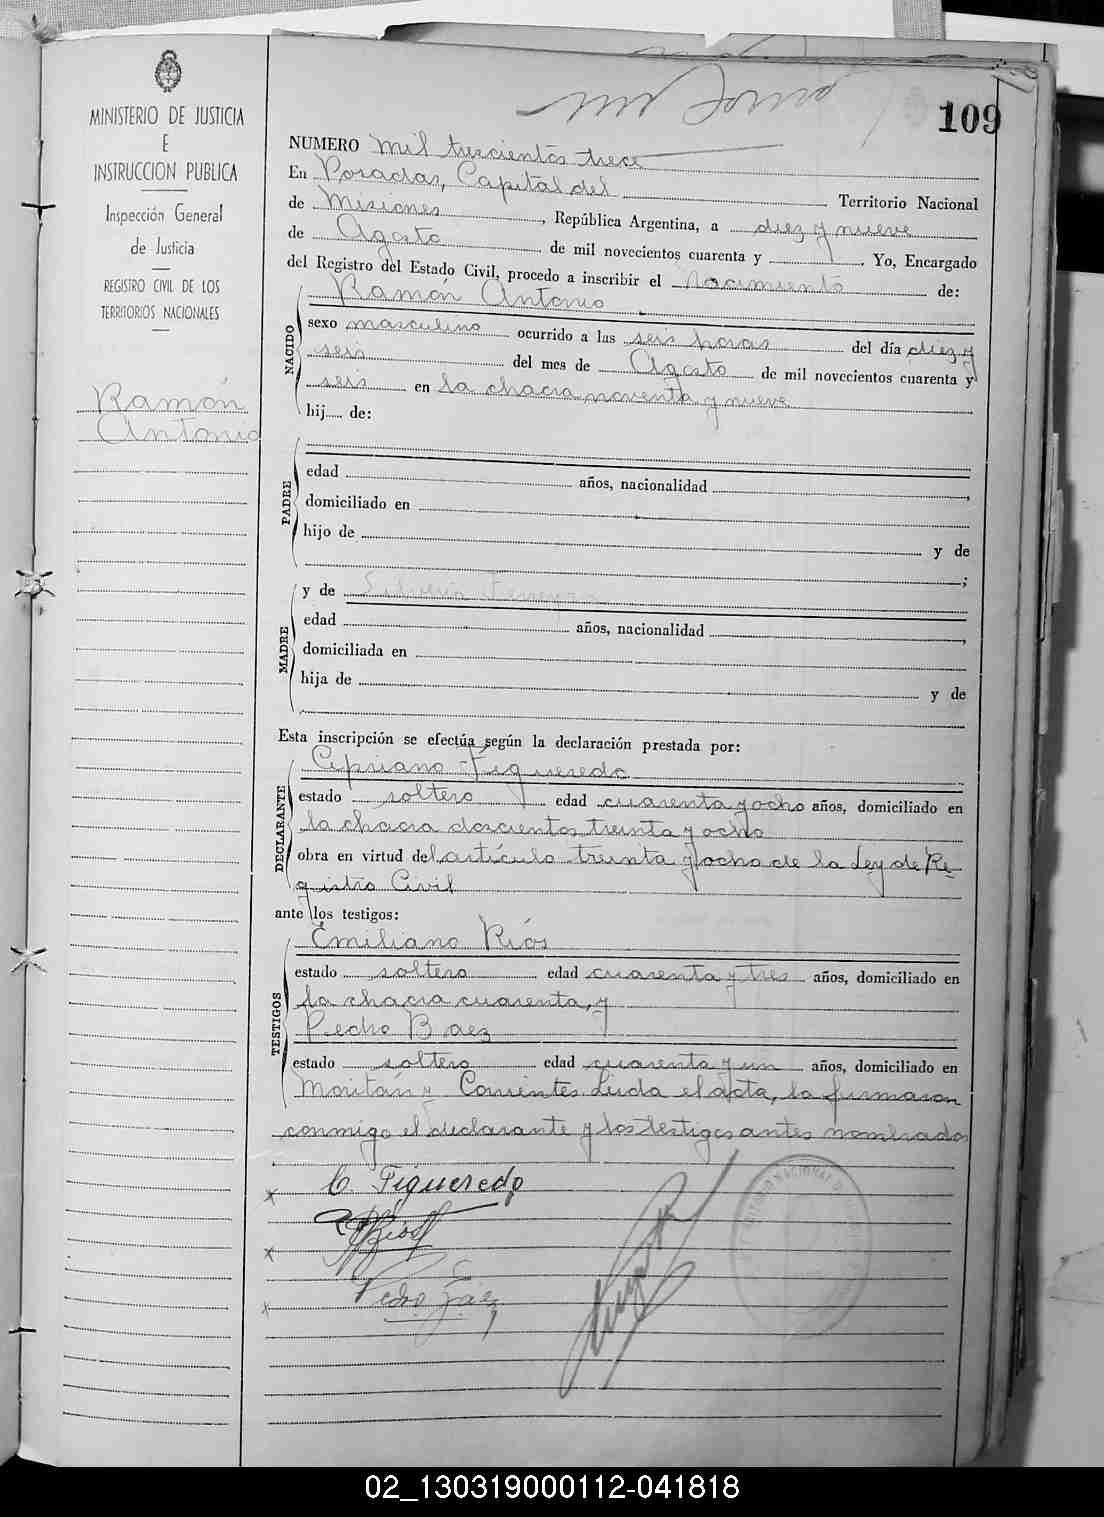 109
MINISTERIO DE JUSTICIA
E
INSTRUCCION PUBLICA
Inspección General
de Justicia
REGISTRO CIVIL DE LOS
TERRITORIOS NACIONALES
Ramón
Antonio
NUMERO Mil trescientos trece
En Posadas, Capital del Territorio Nacional
de Misiones, República Argentina, a diez y nueve
de Agosto de mil novecientos cuarenta y . Yo, Encargado
del Registro del Estado Civil, procedo a inscribir el Nacimiento de:
NACIDO
Ramón Antonio
sexo masculino ocurrido a las seis horas del día diez y
seis del mes de Agosto de mil novecientos cuarenta y
seis en la chacra noventa y nueve
hij de:
PADRE
edad años, nacionalidad ,
domiciliado en
hijo de y de
;
MADRE
y de Silveria Ferreyra
edad años, nacionalidad ,
domiciliada en
hija de y de
Esta inscripción se efectúa según la declaración prestada por:
DECLARANTE
Cipriano Figueredo
estado soltero edad cuarenta y ocho años, domiciliado en
la chacra doscientos treinta y ocho
obra en virtud del artículo treinta y ocho de la Ley de Re-
gistro Civil
ante los testigos:
TESTIGOS
Emiliano Ríos
estado soltero edad cuarenta y tres años, domiciliado en
la chacra cuarenta, y
Pedro Baez
estado soltero edad cuarenta y un años, domiciliado en
Moritán y Corrientes. Leida el acta, la firmaron
conmigo el declarante y los testigos antes nombrados
C. Figueredo
Pedro Báez
02_130319000112-041818